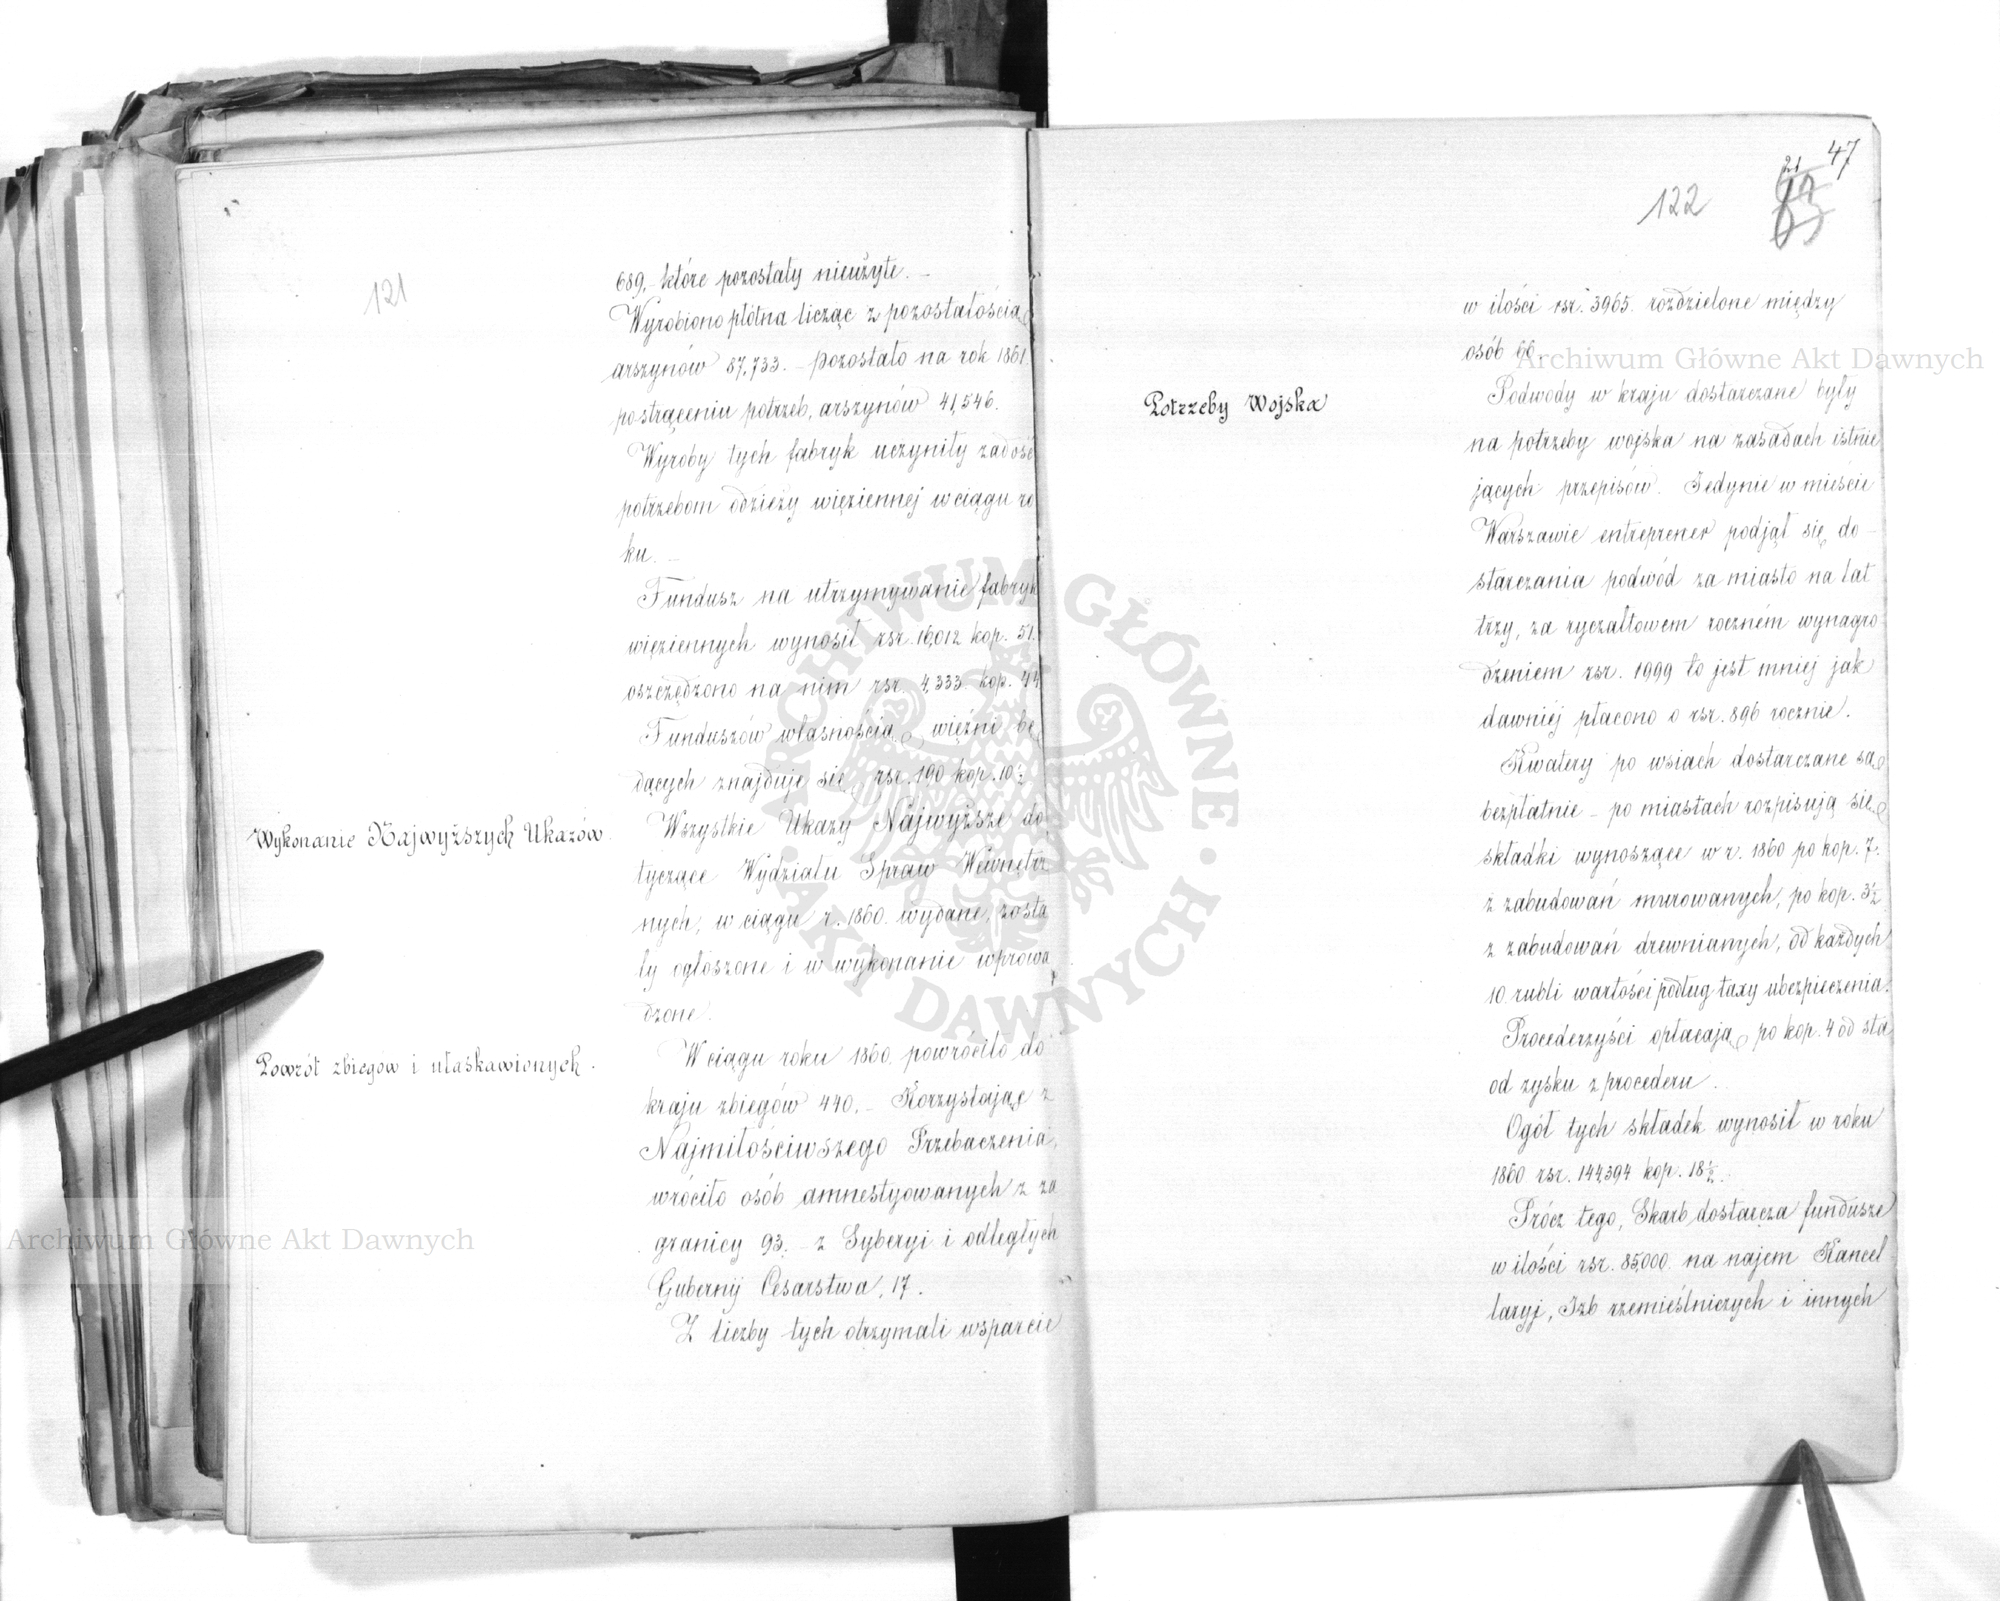 121
689,- które pozostały nieużyte. -
Wyrobiono płótna licząc z pozostałością
arszynów 87,733. - pozostało na rok 1861.
po strąceniu potrzeb, arszynów 41,546.
Wyroby tych fabryk uczyniły zadość
potrzebom odzieży więziennej w ciągu ro
ku. -
Fundusz na utrzymywanie fabryk
więziennych wynosił rsr. 16,012 kop. 51.
oszczędzono na nim rsr. 4,333. kop. 44
Funduszów własnością więźni bę
dących znajduje się rsr. 190 kop. 10½
Wykonanie Najwyższych Ukazów.
Wszystkie Ukazy Najwyższe do
tyczące Wydziału Spraw Wewnętrz
nych, w ciągu r. 1860. wydane, zosta
ły ogłoszone i w wykonanie wprowa
dzone.
Powrót zbiegów i ułaskawionych.
W ciągu roku 1860. powróciło do
kraju zbiegów 440. - Korzystając z
Najmiłościwszego Przebaczenia,
wróciło osób amnestyowanych z za
granicy 93. - z Syberyi i odległych
Gubernij Cesarstwa, 17.
Z liczby tych otrzymali wsparcie
47
21
122
w ilości rsr. 3965. rozdzielone między
osób 66.
Potrzeby Wojska
Podwody w kraju dostarczane były
na potrzeby wojska na zasadach istnie
jących przepisów. Jedynie w mieście
Warszawie entreprener podjął się do-
starczania podwód za miasto na lat
trzy, za ryczałtowem rocznem wynagro
dzeniem rsr. 1999 to jest mniej jak
dawniej płacono o rsr. 896 rocznie.
Kwatery po wsiach dostarczane są
bezpłatnie - po miastach rozpisują się
składki wynoszące w r. 1860 po kop. 7.
z zabudowań murowanych, po kop. 3½
z zabudowań drewnianych, od każdych
10 rubli wartości podług taxy ubezpieczenia.
Procederzyści opłacają po kop. 4 od sta
od zysku z procederu.
Ogół tych składek wynosił w roku
1860 rsr. 144,394 kop. 18½.
Prócz tego, Skarb dostarcza fundusze
w ilości rsr. 85,000. na najem Kancel
laryj, Izb rzemieślniczych i innych
Archiwum Główne Akt Dawnych
Archiwum Główne Akt Dawnych
ARCHIWUM GŁÓWNE · AKT DAWNYCH ·